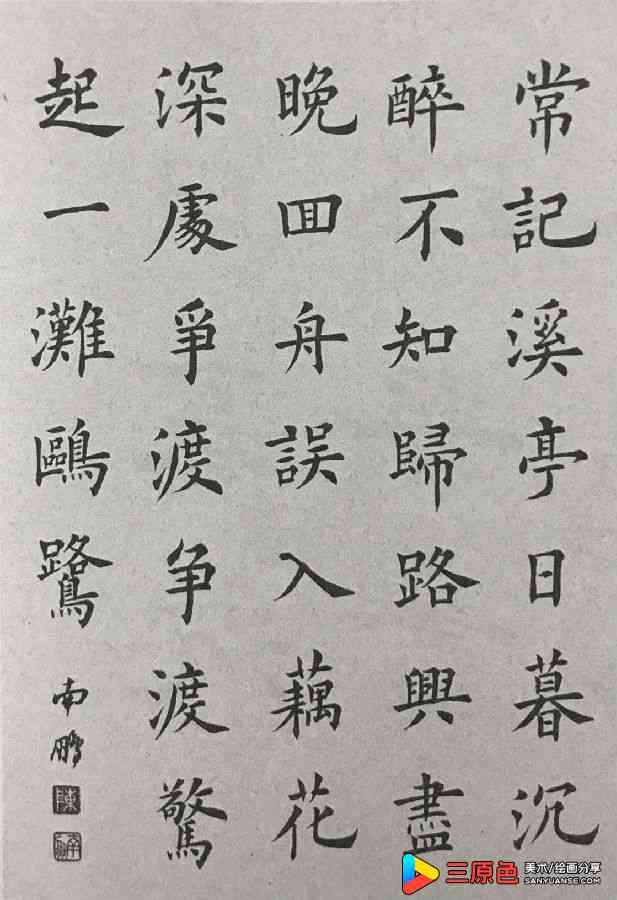 常記溪亭日暮沉
醉不知歸路興盡
晚回舟誤入藕花
深處爭渡争渡驚
起一灘鷗鷺
南鵬
三原色 美术/绘画分享
SANYUANSE.COM